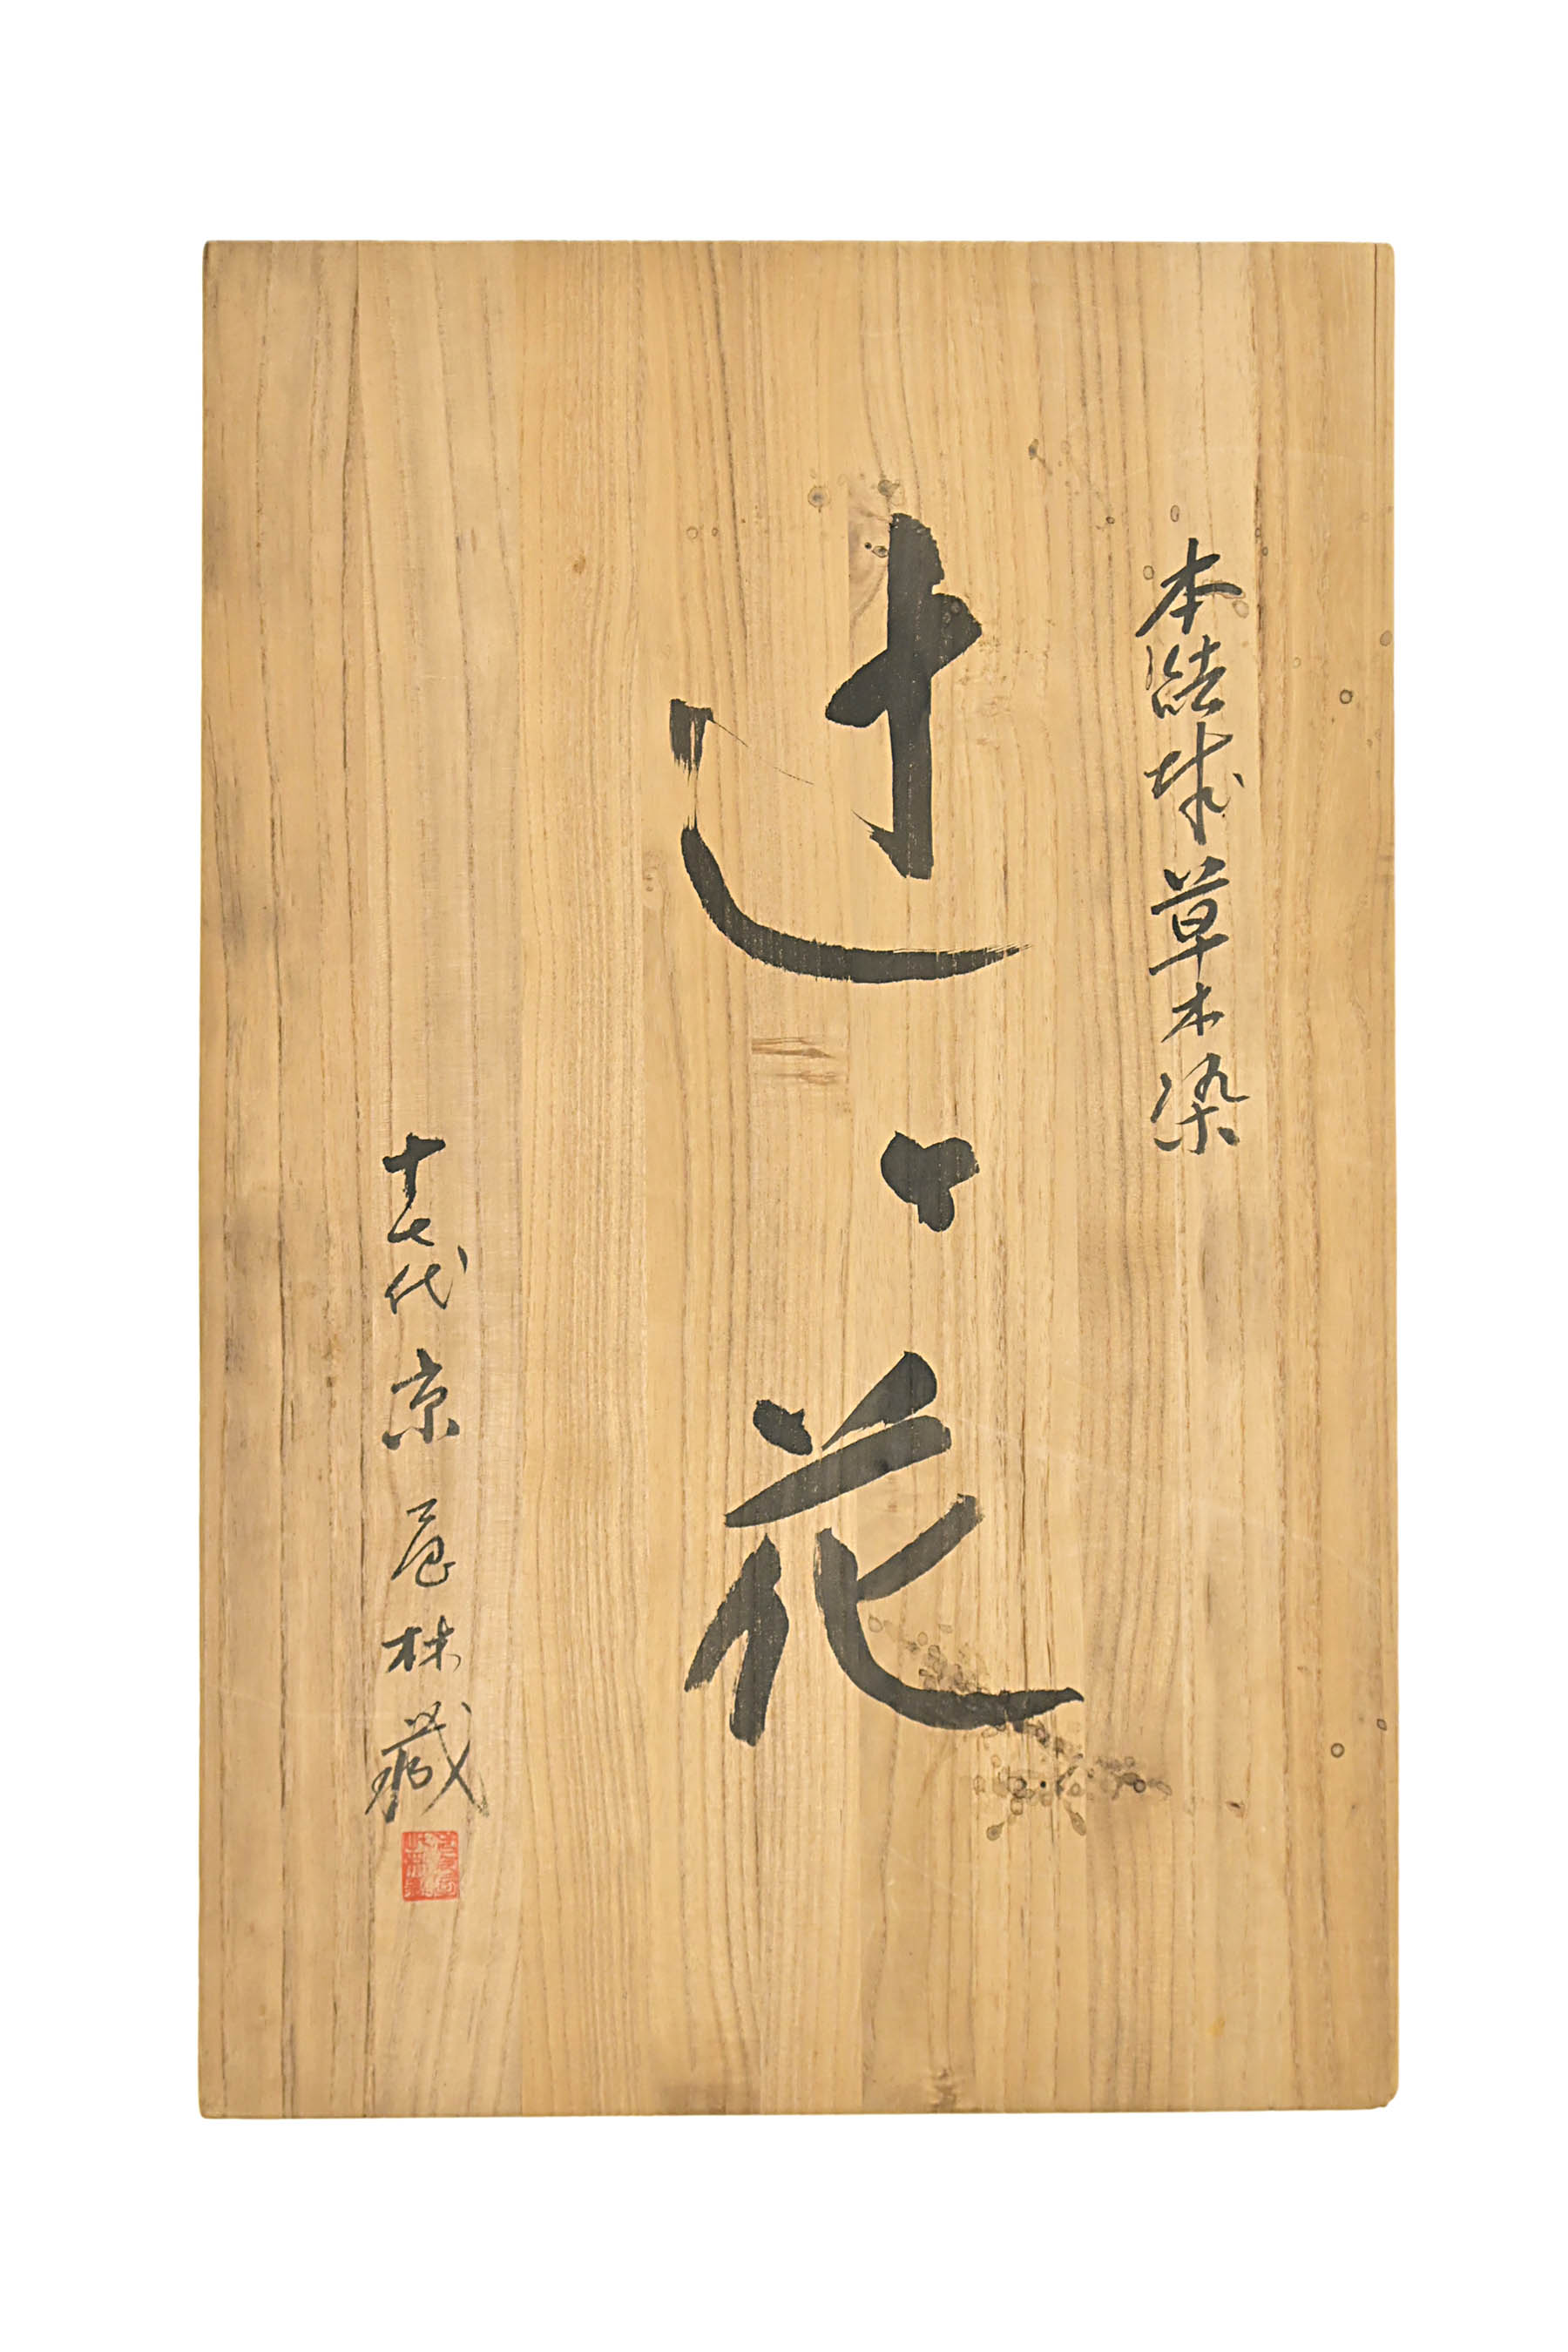 本結城草木染
辻ヶ花
十七代京屋林藏